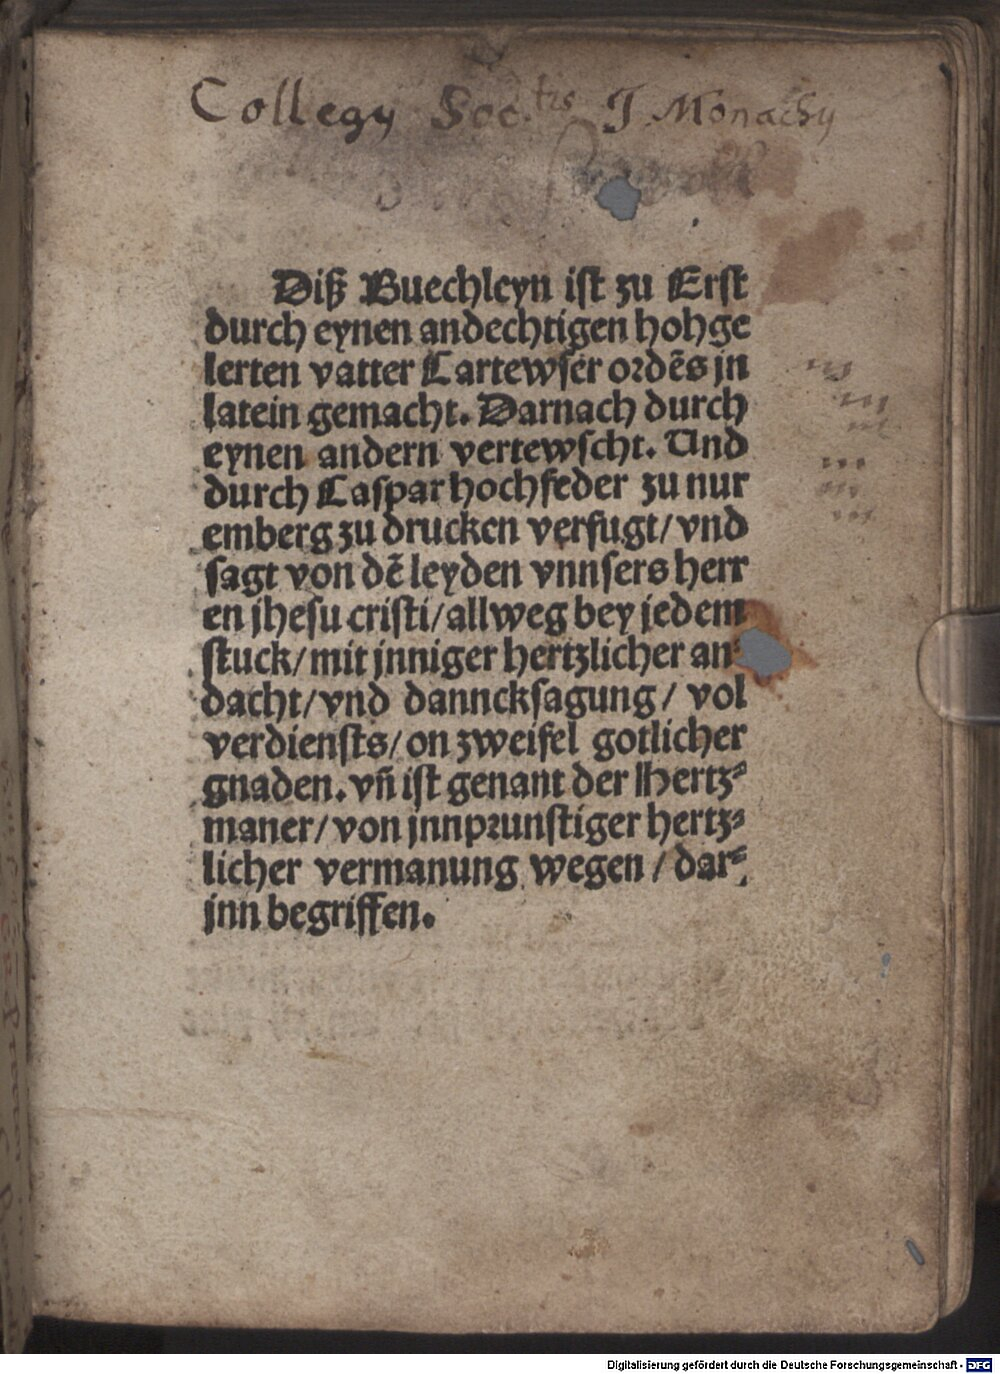 Collegy Soc.tis J. Monachy
Diß Buechleyn ist zu Erst
durch eynen andechtigen hohge
lerten vatter Cartewser ordẽs jn
latein gemacht. Darnach durch
eynen andern vertewscht. Und
durch Caspar hochfeder zu nur
emberg zu drucken verfugt/ vnd
sagt von dẽ leyden vnnsers herr
en jhesu cristi/ allweg bey jedem
stuck/ mit jnniger hertzlicher an⸗
dacht/ vnd danncksagung/ vol
verdiensts/ on zweifel gotlicher
gnaden. vñ ist genant der Hertz⸗
maner/ von jnnprunstiger hertz⸗
licher vermanung wegen/ dar⸗
jnn begriffen.
Digitalisierung gefördert durch die Deutsche Forschungsgemeinschaft - DFG